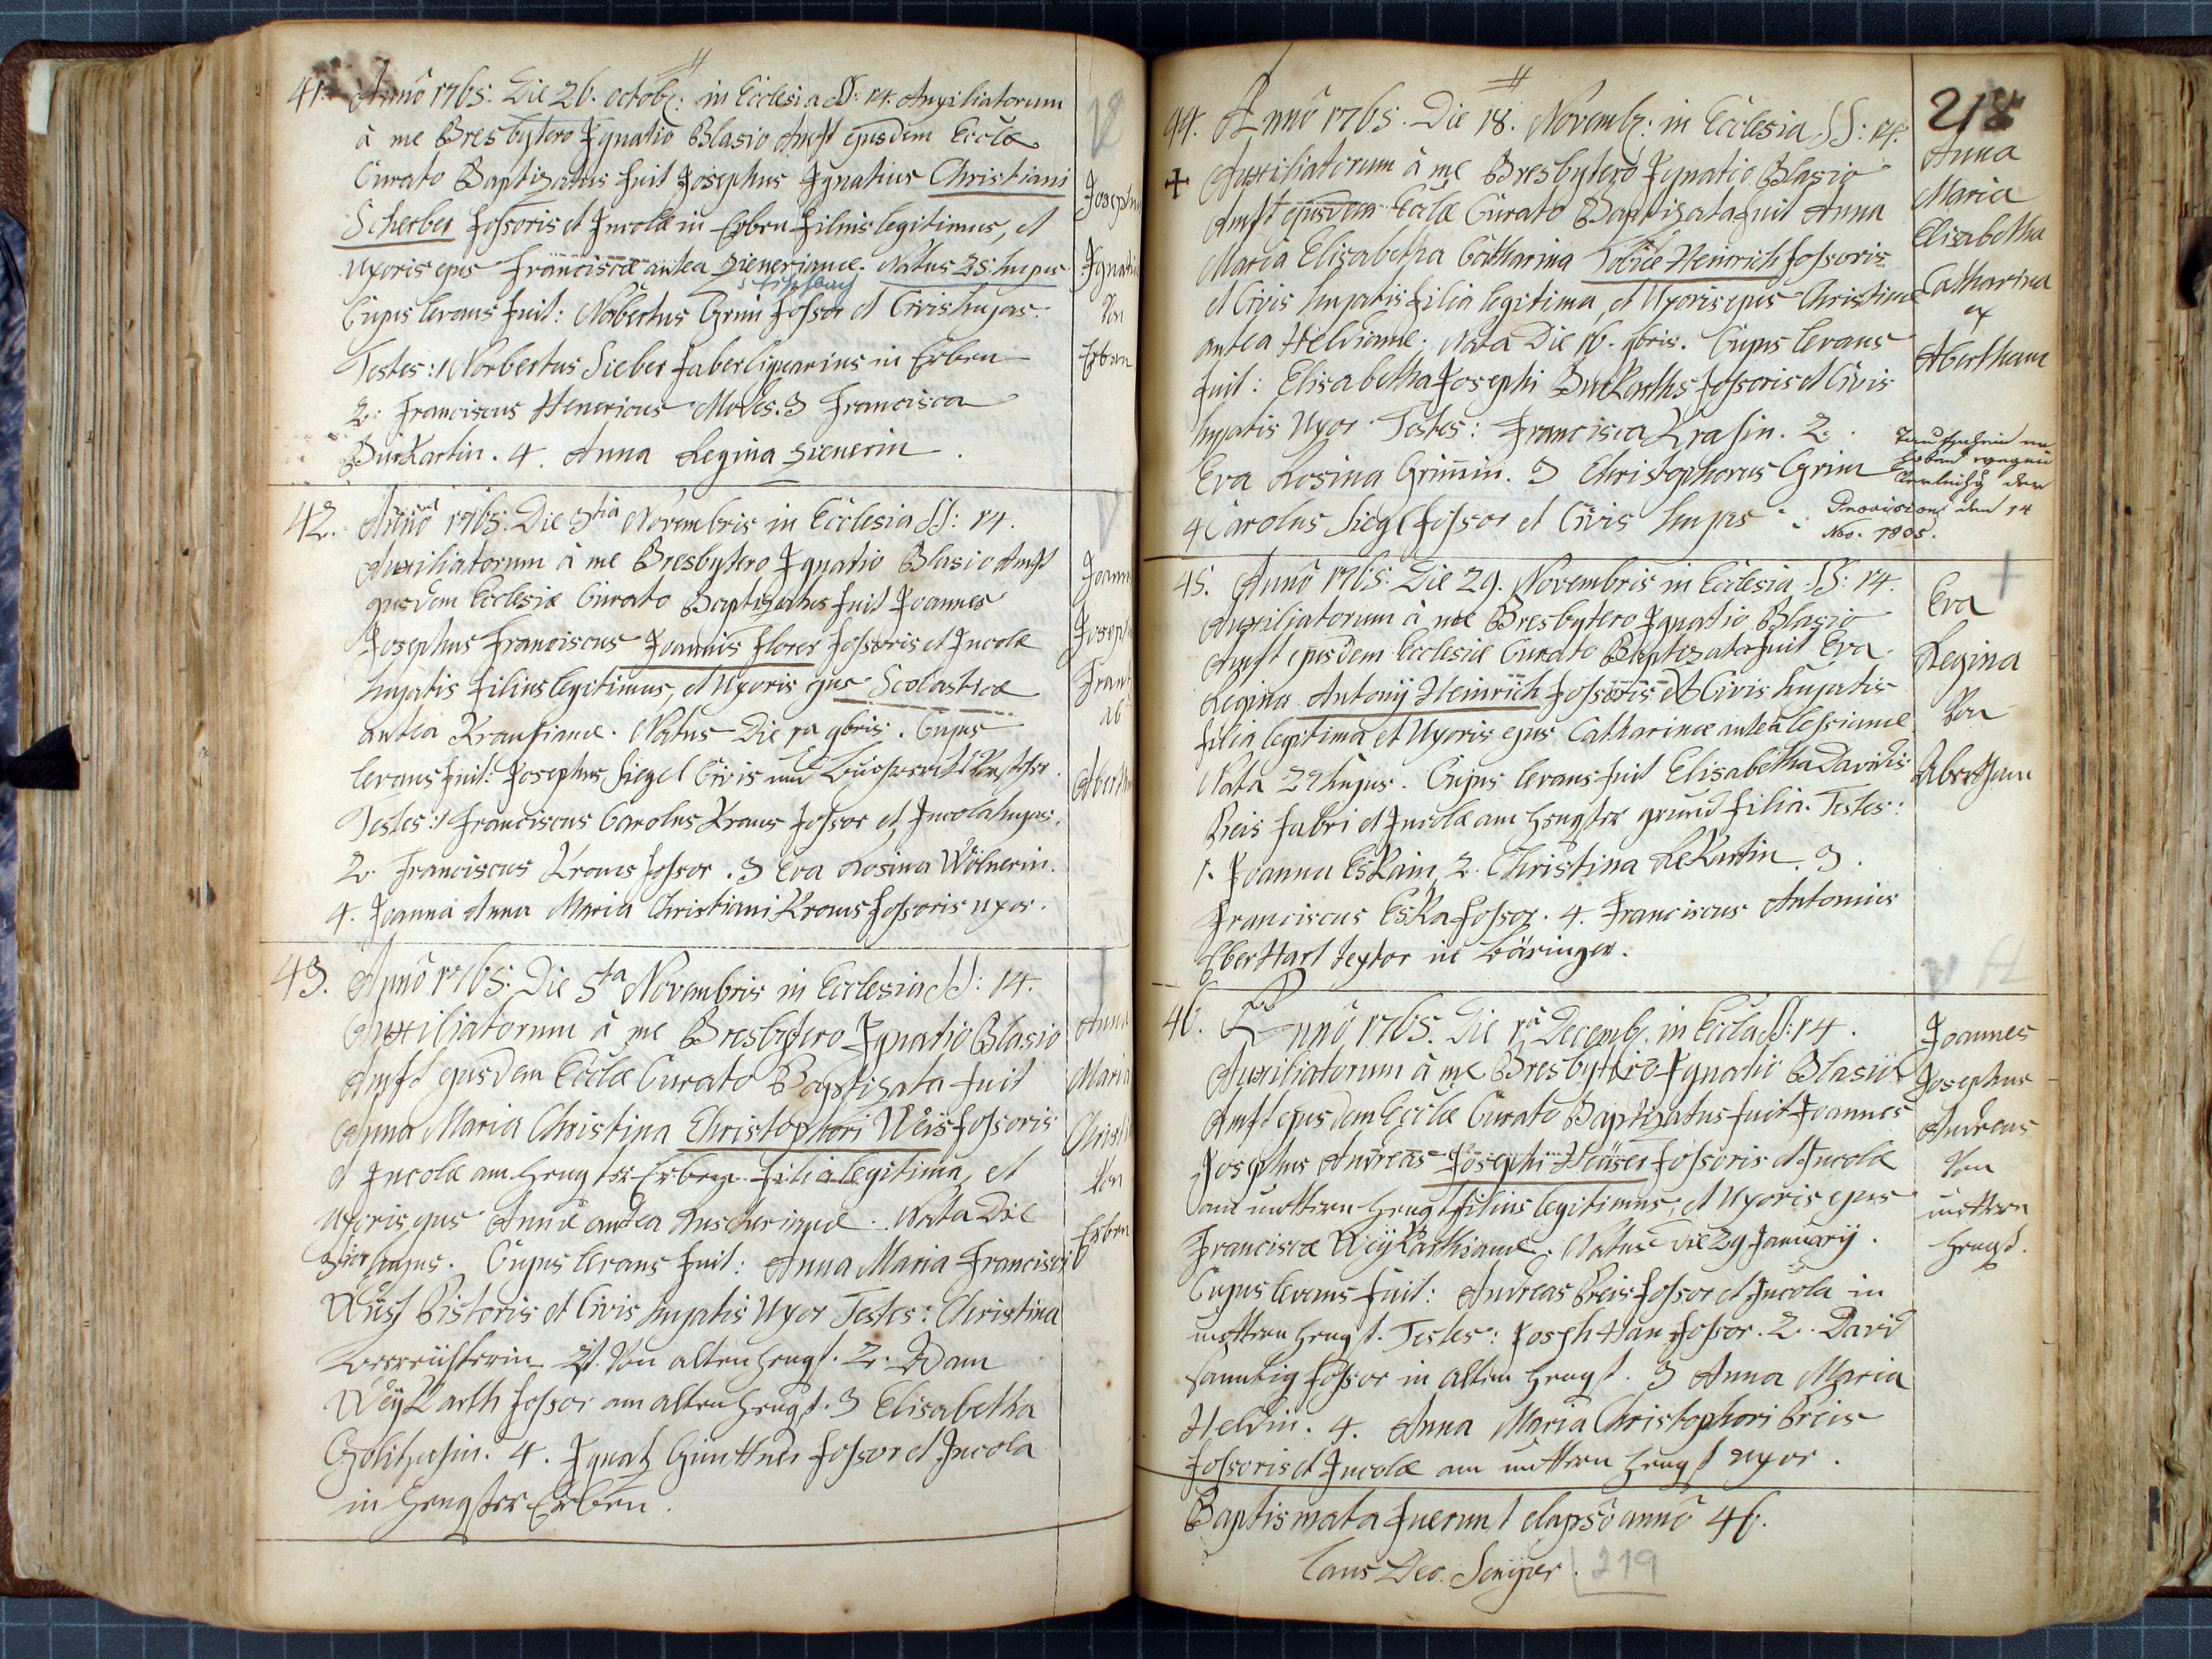 41. Anno 1765. Die 26. octobr: in Ecclesia SS: 14. Auxiliatorum
à me Presbytero Ignatio Blasio Amst ejusdem Eccla
Curato Baptizatus fuit Josephus Ignatius Christiani
Scherber fossoris et Incolæ in Erben filius legitimus, et
Uxoris ejus Franciscæ antea Zienerianæ. Natus 25. hujus
Cujus levans fuit: Norbertus Grim fossor et Civis hujas.
Testes: 1 Norbertus Sieber faber lignarius in Erben
2. Franciscus Henericus Moles. 3 Francisca
Burkartin. 4. Anna Regina Zienerin.
Josephus
Ignatius
Von
Erben
42. Anno 1765. Die 3tia Novembris in Ecclesia SS: 14.
Auxiliatorum à me Presbytero Ignatio Blasio Amst
ejusdem Ecclesiæ Curato Baptizatus fuit Joannes
Josephus Franciscus Joannis Florer fossoris et Incolæ
hujatis filius legitimus, et Uxoris ejus Scolasticæ
antea Krausianæ. Natus Die 1ma 9bris. Cujus
levans fuit: Josephus Siegel Civis und
Testes: 1 Franciscus Carolus Kraus fossor et Incola hujas.
2. Franciscus Kraus fossor. 3 Eva Rosina Wölnerin.
4. Joanna Anna Maria Christiani Kraus fossoris uxor.
Joannes
Joseph
Fran
ab
Aberth
43. Anno 1765. Die 5ta Novembris in Ecclesia SS: 14.
Auxiliatorum à me Presbytero Ignatio Blasio
Amst ejusdem Ecclæ Curato Baptizata fuit
Anna Maria Christina Christophori Weis fossoris
et Incolæ am Hengster Erben filia legitima, et
Uxoris ejus Annæ antea Luscherianæ. Nata Die
3tia hujus. Cujus levans fuit: Anna Maria Francisci
Wüst Pistoris et Civis hujatis Uxor Testes: Christina
Von alten Hengst. 2. Adam
Weÿkarth fossor am alten Hengst. 3 Elisabetha
4. Ignatz Günttner fossor et Incola
in Hengster Erben.
Anna
Maria
Christi
Von
Erben
218
44. Anno 1765. Die 18. Novembr: in Ecclesia SS: 14.
Auxiliatorum à me Presbytero Ignatio Blasio
Amst ejusdem Ecclæ Curato Baptizata fuit Anna
Maria Elisabetha Catharina Tobiæ Heinrich fossoris
et Civis hujatis filia legitima, et Uxoris ejus Christinæ
antea Heldianæ. Nata Die 16. 9bris. Cujus levans
fuit: Elisabetha Josephi Burkarths fossoris et Civis
hujatis Uxor. Testes: Francisca Krasin. 2.
Eva Rosina Grimin. 3 Christophorus Grim
4 Carolus Siegl fossor et Civis hujas
Anna
Maria
Elisabetha
Catharina
ex
Abertham
Provision den 14
Nov. 1805.
45. Anno 1765. Die 29. Novembris in Ecclesia SS: 14.
Auxiliatorum à me Presbytero Ignatio Blasio
Amst ejusdem Ecclesiæ Curato Baptizata fuit Eva
Regina Antonÿ Heinrich fossoris et Civis hujatis
filia legitima et Uxoris ejus Catharinæ antea Lessianæ
Nata 27 hujus. Cujus levans fuit Elisabetha Davidis
Preis fabri et Incolæ am Hengster grund filia. Testes:
1. Joanna Eskain 2. Christina Lekartin 3.
Franciscus Eska fossor. 4. Franciscus Antonius
Eberhart textor in Bäringer.
Eva
Regina
Von
Abertham
46. Anno 1765. Die 1a Decemb. in Eccla SS: 14.
Auxiliatorum à me Presbytero Ignatio Blasio
Amst ejusdem Ecclæ Curato Baptizatus fuit Joannes
Josephus Andreas Josephi Heüser fossoris et Incolæ
am mittern Hengst filius legitimus, et Uxoris ejus
Franciscæ Weÿkarthianæ. Natus die 29 Januarÿ.
Cujus levans fuit: Andreas Preis fossor et Incola in
mittern Hengst. Testes: Joseph Han fossor. 2. David
fossor in alten Hengst. 3 Anna Maria
Heldin. 4. Anna Maria Christophori Preis
fossoris et Incolæ am mittern Hengst uxor.
Joannes
Josephus
Andreas
Von
mittern
Hengst.
Baptismata fuerunt elapsô annô 46.
Laus Deo Semper.
219